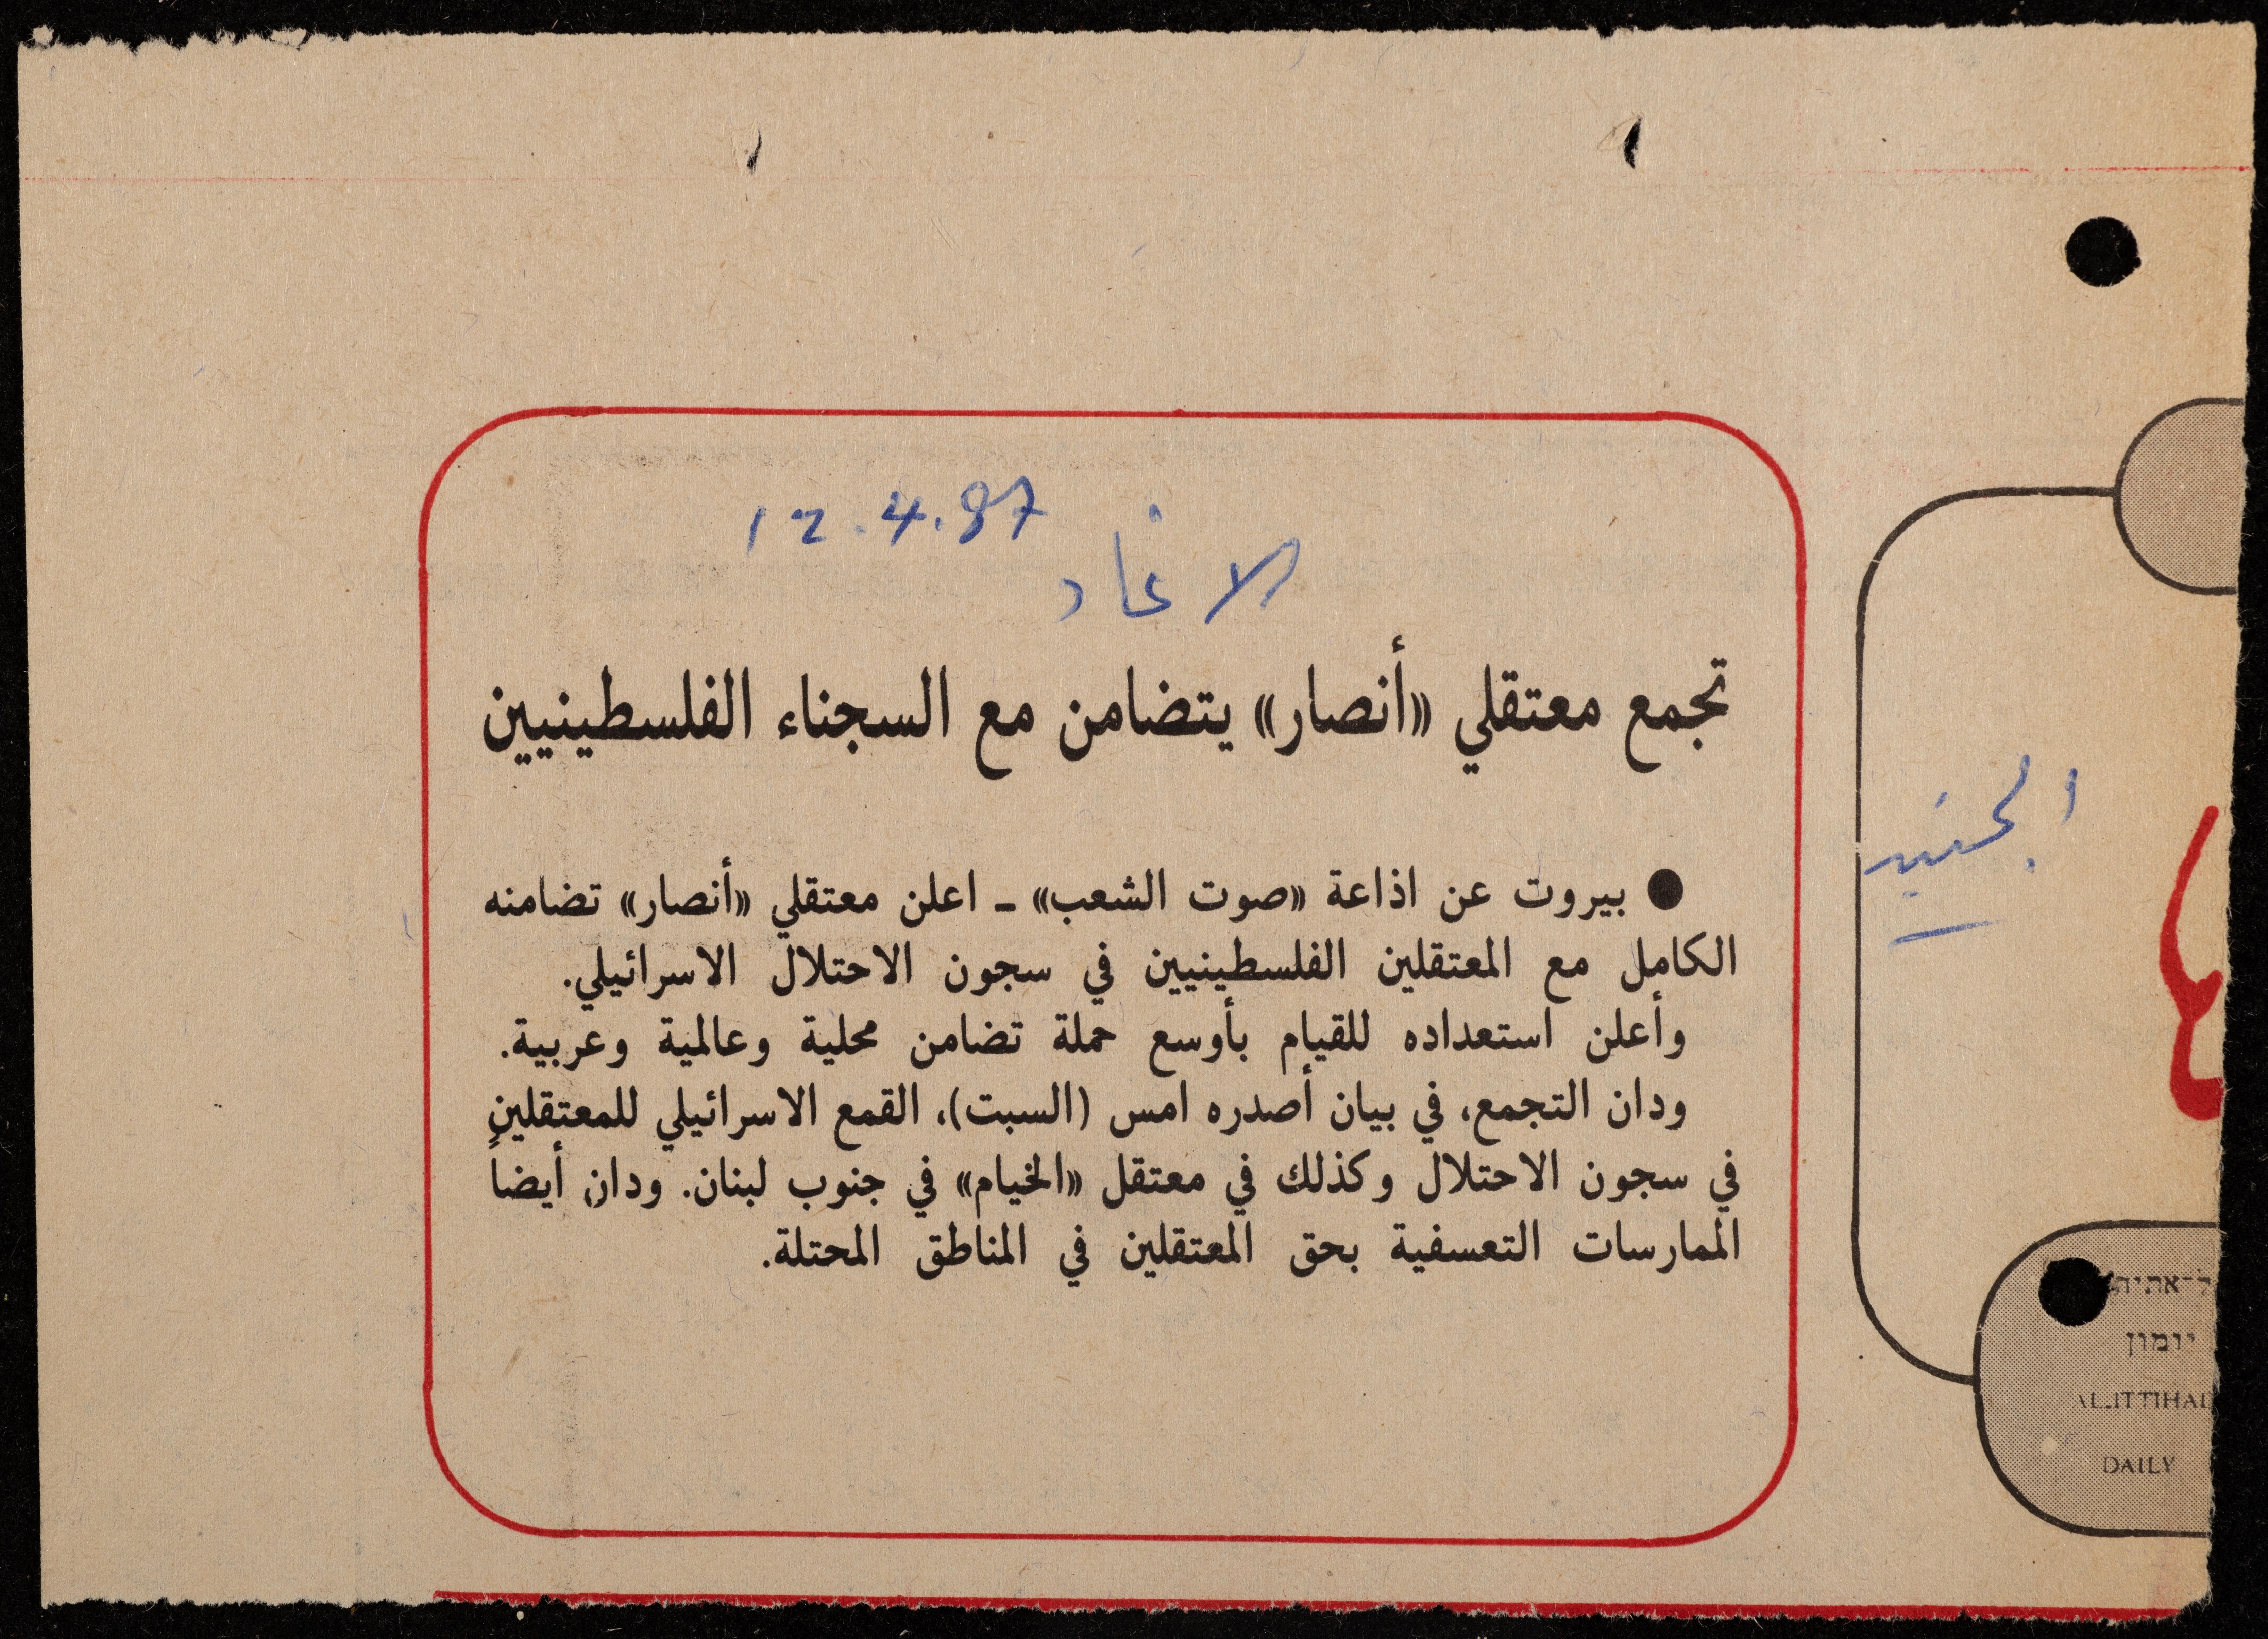 12.4.87
الاتحاد
تجمع معتقلي «أنصار» يتضامن مع السجناء الفلسطينيين
● بيروت عن اذاعة «صوت الشعب» ـ اعلن معتقلي «أنصار» تضامنه
الكامل مع المعتقلين الفلسطينيين في سجون الاحتلال الاسرائيلي.
وأعلن استعداده للقيام بأوسع حملة تضامن محلية وعالمية وعربية.
ودان التجمع، في بيان أصدره امس (السبت)، القمع الاسرائيلي للمعتقلين
في سجون الاحتلال وكذلك في معتقل «الخيام» في جنوب لبنان. ودان أيضاً
الممارسات التعسفية بحق المعتقلين في المناطق المحتلة.
الجنيد
יומון
AL-ITTIHAD
DAILY